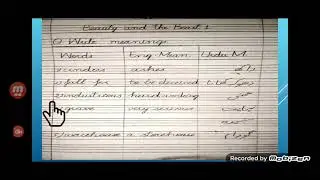 Beauty and The Beast 1
Q Write meanings
Words Eng Mean. Urdu M.
cinders ashes راکھ
fall for to be deceived
industrious hard working
grave very serious
warehouse a storehouse گودام
Recorded by
Mobizen